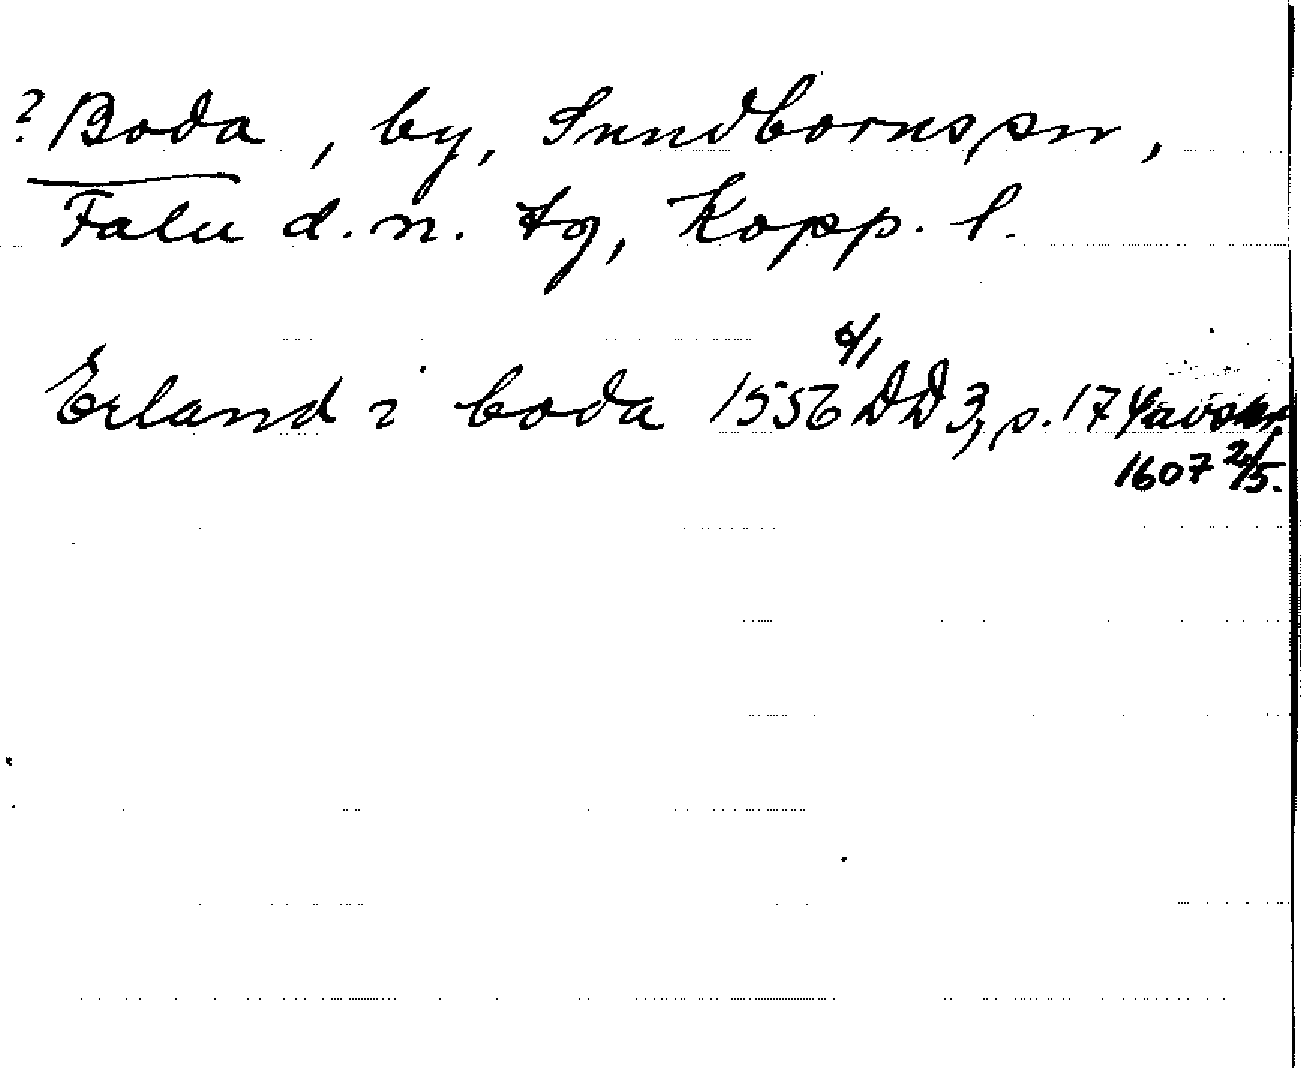 ? Boda, by, Sundbornssn,
Falu d.n. tg, Kopp. l.
Erland i boda 1556 6/1 DD 3, s. 174 avskr.
1607 2/5.